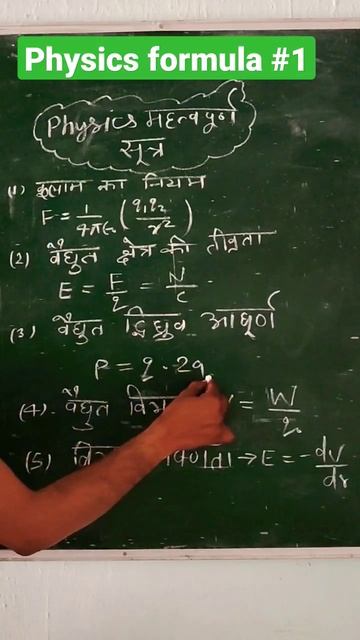 Physics formula #1
Physics महत्वपूर्ण
सूत्र
(1) कूलाम का नियम
F = 1/4πε₀ (q₁q₂/r²)
(2) वैद्युत क्षेत्र की तीव्रता
E = F/q = N/C
(3) वैद्युत द्विध्रुव आघूर्ण
P = q · 2a
(4) वैद्युत = W/q
(5) → E = -dv/dr